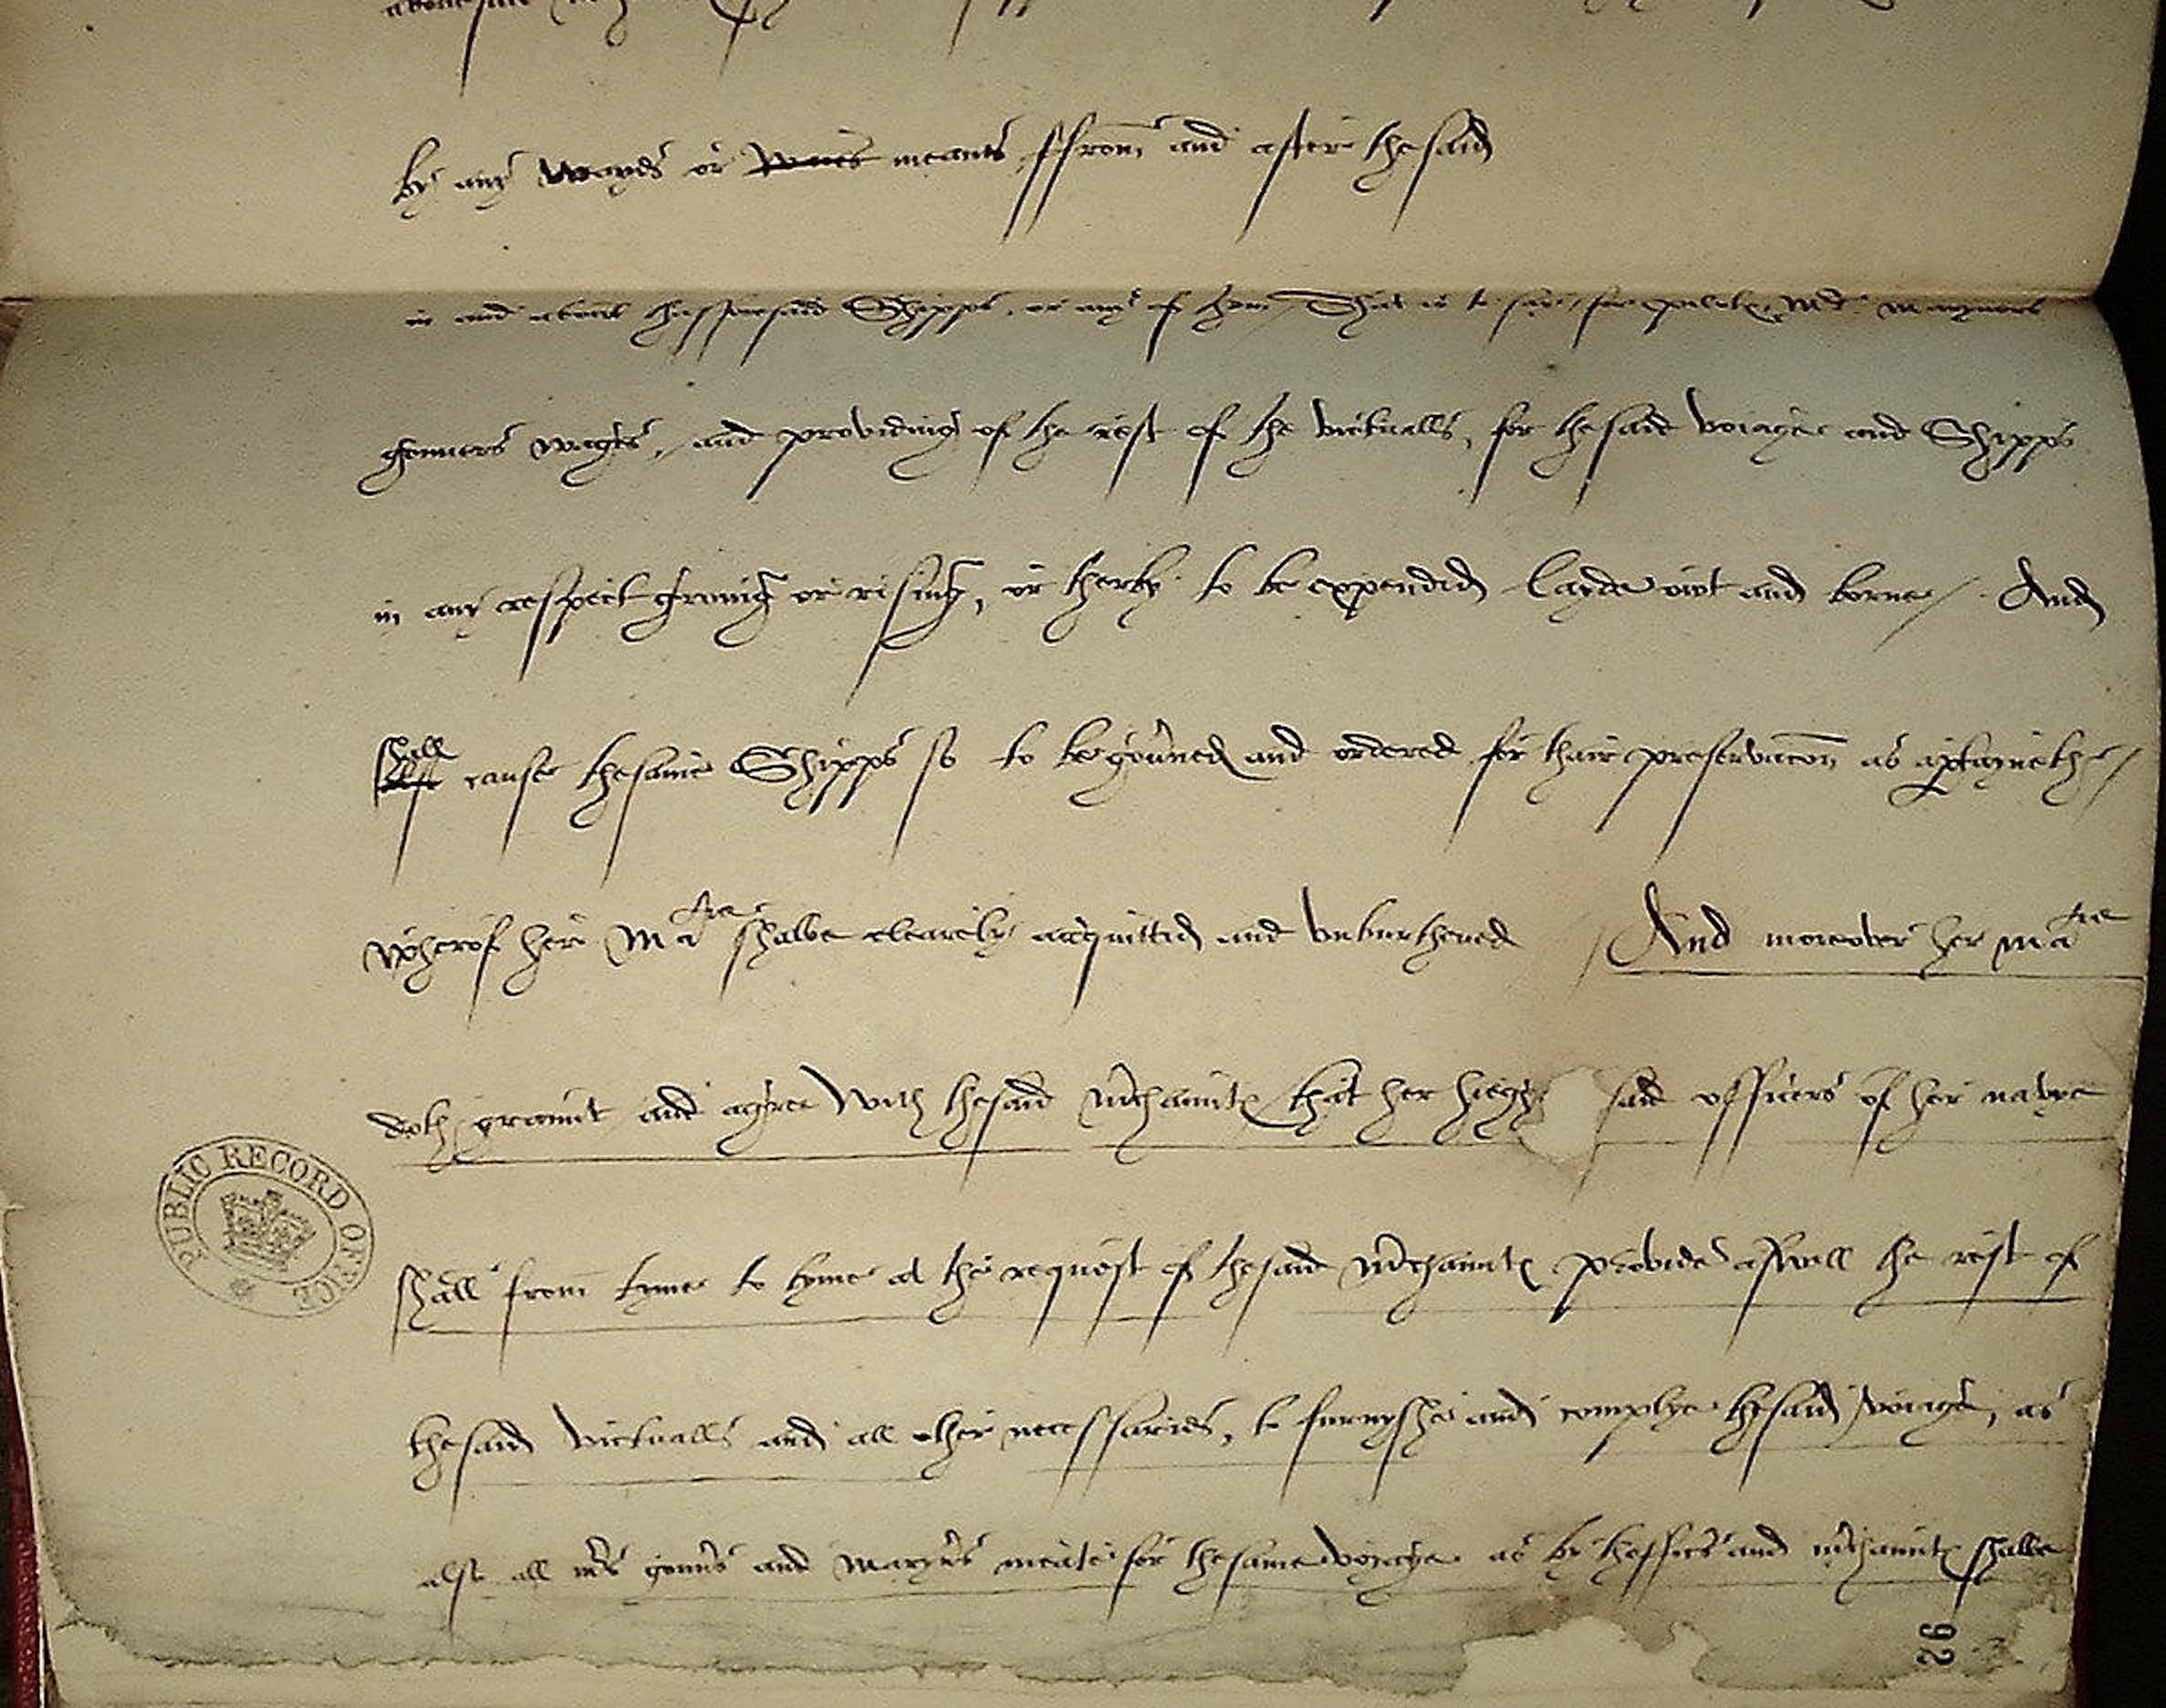 by any wayes or meanes ffrom and after thesaid
in and about thafforesaid Shipps, or any of them / That is to say, for Maryners
gonners wages, and providing of the rest of the victualls, for thesaid voiage and Shipps
in any respect growing or rising, or therby to be expendid layde owt and borne / And
shall cause thesame Shipps so to be gouned and ordered for thair preservacon as aptayneth /
wherof her Matie shalbe clearely acquittid and vnburthened / And moreover her matie
doth graunt and agree with thesaid mchaunts that her said officers of her navye
shall from tyme to tyme at the request of thesaid mchaunts provide aswell the rest of
thesaid victualls and all other necessaries, to furnyshe and complye thesaid voiage, as
also all mrs gonns and maryns meate for thesame voyage as by thoffics and mchaunts shalbe
PUBLIC RECORD OFFICE
92